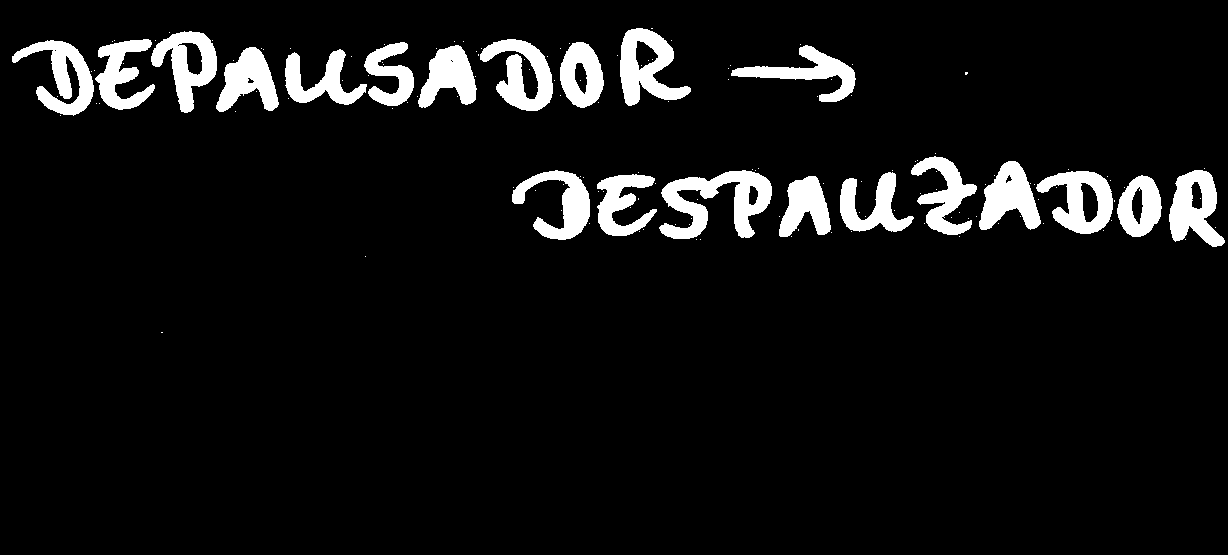 DEPAUSADOR →
DESPAUZADOR